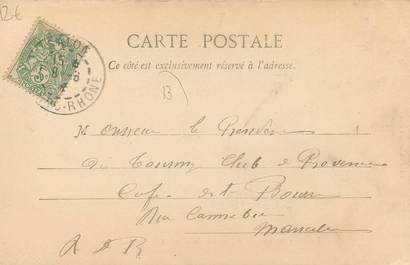 12€
CARTE POSTALE
Ce côté est exclusivement réservé à l'adresse.
13
Monsieur le Président
du Touring Club de Provence
Café de la Bourse
Rue Cannebière
Marseille
DU-RHONE